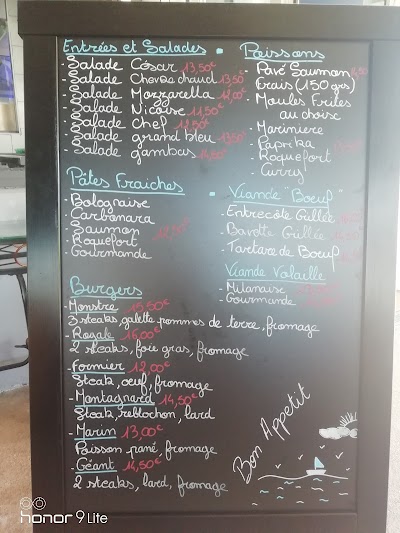 Entrées et Salades
- Salade César 13,50€
- Salade Chèvre chaud 13,50€
- Salade Mozzarella 12,00€
- Salade Niçoise 11,50€
- Salade Chef 12,50€
- Salade grand bleu 13,50€
- Salade gambas 14,50€
Poissons
- Pavé Saumon
Frais (150 grs)
- Moules Frites
au choix
- Marinière
- Paprika
- Roquefort
- Curry
Pâtes Fraiches
- Bolognaise
- Carbonara
- Saumon
- Roquefort 12,50€
- Gourmande
Viande "Boeuf"
- Entrecôte Grillée
- Bavette Grillée
- Tartare de Boeuf
Viande Volaille
- Milanaise
- Gourmande
Burgers
- Monstre 15,50€
3 steaks, galette pommes de terre, fromage
- Royale 16,00€
2 steaks, foie gras, fromage
- Fermier 12,00€
Steak, oeuf, fromage
- Montagnard 14,50€
Steak, reblochon, lard
- Marin 13,00€
Poisson pané, fromage
- Géant 14,50€
2 steaks, lard, fromage
Bon Appetit
honor 9 Lite